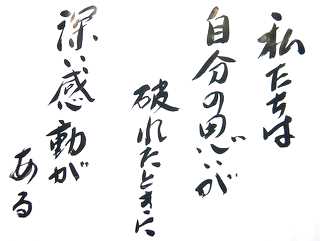 私たちは
自分の思いが
破れたときに
深い感動が
ある